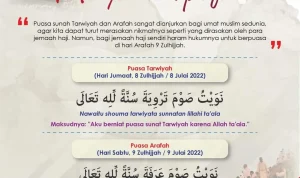 Puasa sunah Tarwiyah dan Arafah sangat dianjurkan bagi umat muslim sedunia,
agar kita dapat turut merasakan nikmatnya seperti yang dirasakan oleh para
jemaah haji. Namun, bagi jemaah haji sendiri haram hukumnya untuk berpuasa
di hari Arafah 9 Zulhijjah.
Puasa Tarwiyah
(Hari Jumaat, 8 Zulhijjah / 8 Julai 2022)
نَوَيْتُ صَوْمَ تَرْوِيَةَ سُنَّةً لِلّٰهِ تَعَالَى
Nawaitu shouma tarwiyata sunnatan lillahi ta'ala
Maksudnya: "Aku berniat puasa sunat Tarwiyah karena Allah ta'ala."
Puasa Arafah
(Hari Sabtu, 9 Zulhijjah / 9 Julai 2022)
نَوَيْتُ صَوْمَ عَرَفَةَ سُنَّةً لِلّٰهِ تَعَالَى